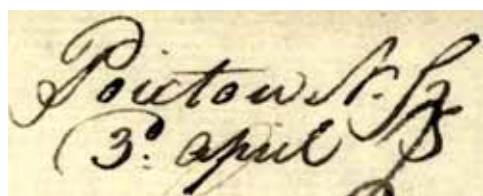 Poictou N. S.
3d. april